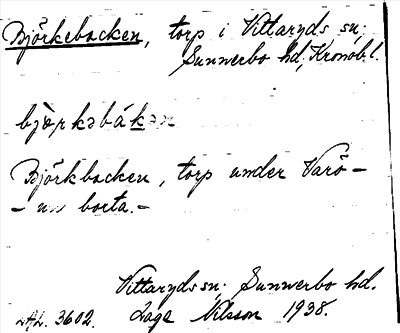 Björkebacken, torp i Vittaryds sn;
Sunnerbo hd; Kronob. l.
bjærkəbákən
Björkbacken, torp under Varö-
- borta.-
Vittaryds sn; Sunnerbo hd.
3602. Tage Nilsson 1938.